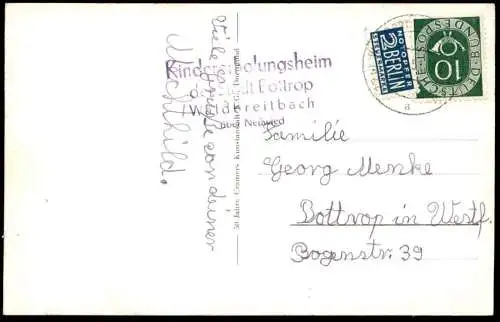 Viele Grüße von deiner
Mechthild.
Kindererholungsheim
der Stadt Bottrop
Waldbreitbach
über Neuwied
50 Jahre Cramers Kunstanstalt KG, Dortmund
NOTOPFER
2 BERLIN
STEUERMARKE
DEUTSCHE BUNDESPOST
10
a
Familie
Georg Menke
Bottrop in Westf.
Bogenstr. 39